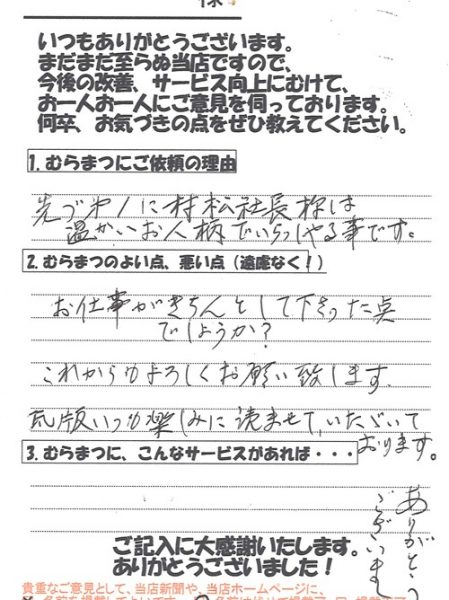 様
いつもありがとうございます。
まだまだ至らぬ当店ですので、
今後の改善、サービス向上にむけて、
お一人お一人にご意見を伺っております。
何卒、お気づきの点をぜひ教えてください。
1. むらまつにご依頼の理由
先づ第1に村松社長様は
温かいお人柄でいらっしゃる事です。
2. むらまつのよい点、悪い点（遠慮なく！）
お仕事がきちんとして下さった点
でしょうか？
これからもよろしくお願い致します。
瓦版いつも楽しみに読ませていただいて
おります。
3. むらまつに、こんなサービスがあれば・・・
ありがとう
ございます
ご記入に大感謝いたします。
ありがとうございました！
貴重なご意見として、当店新聞や、当店ホームページに、